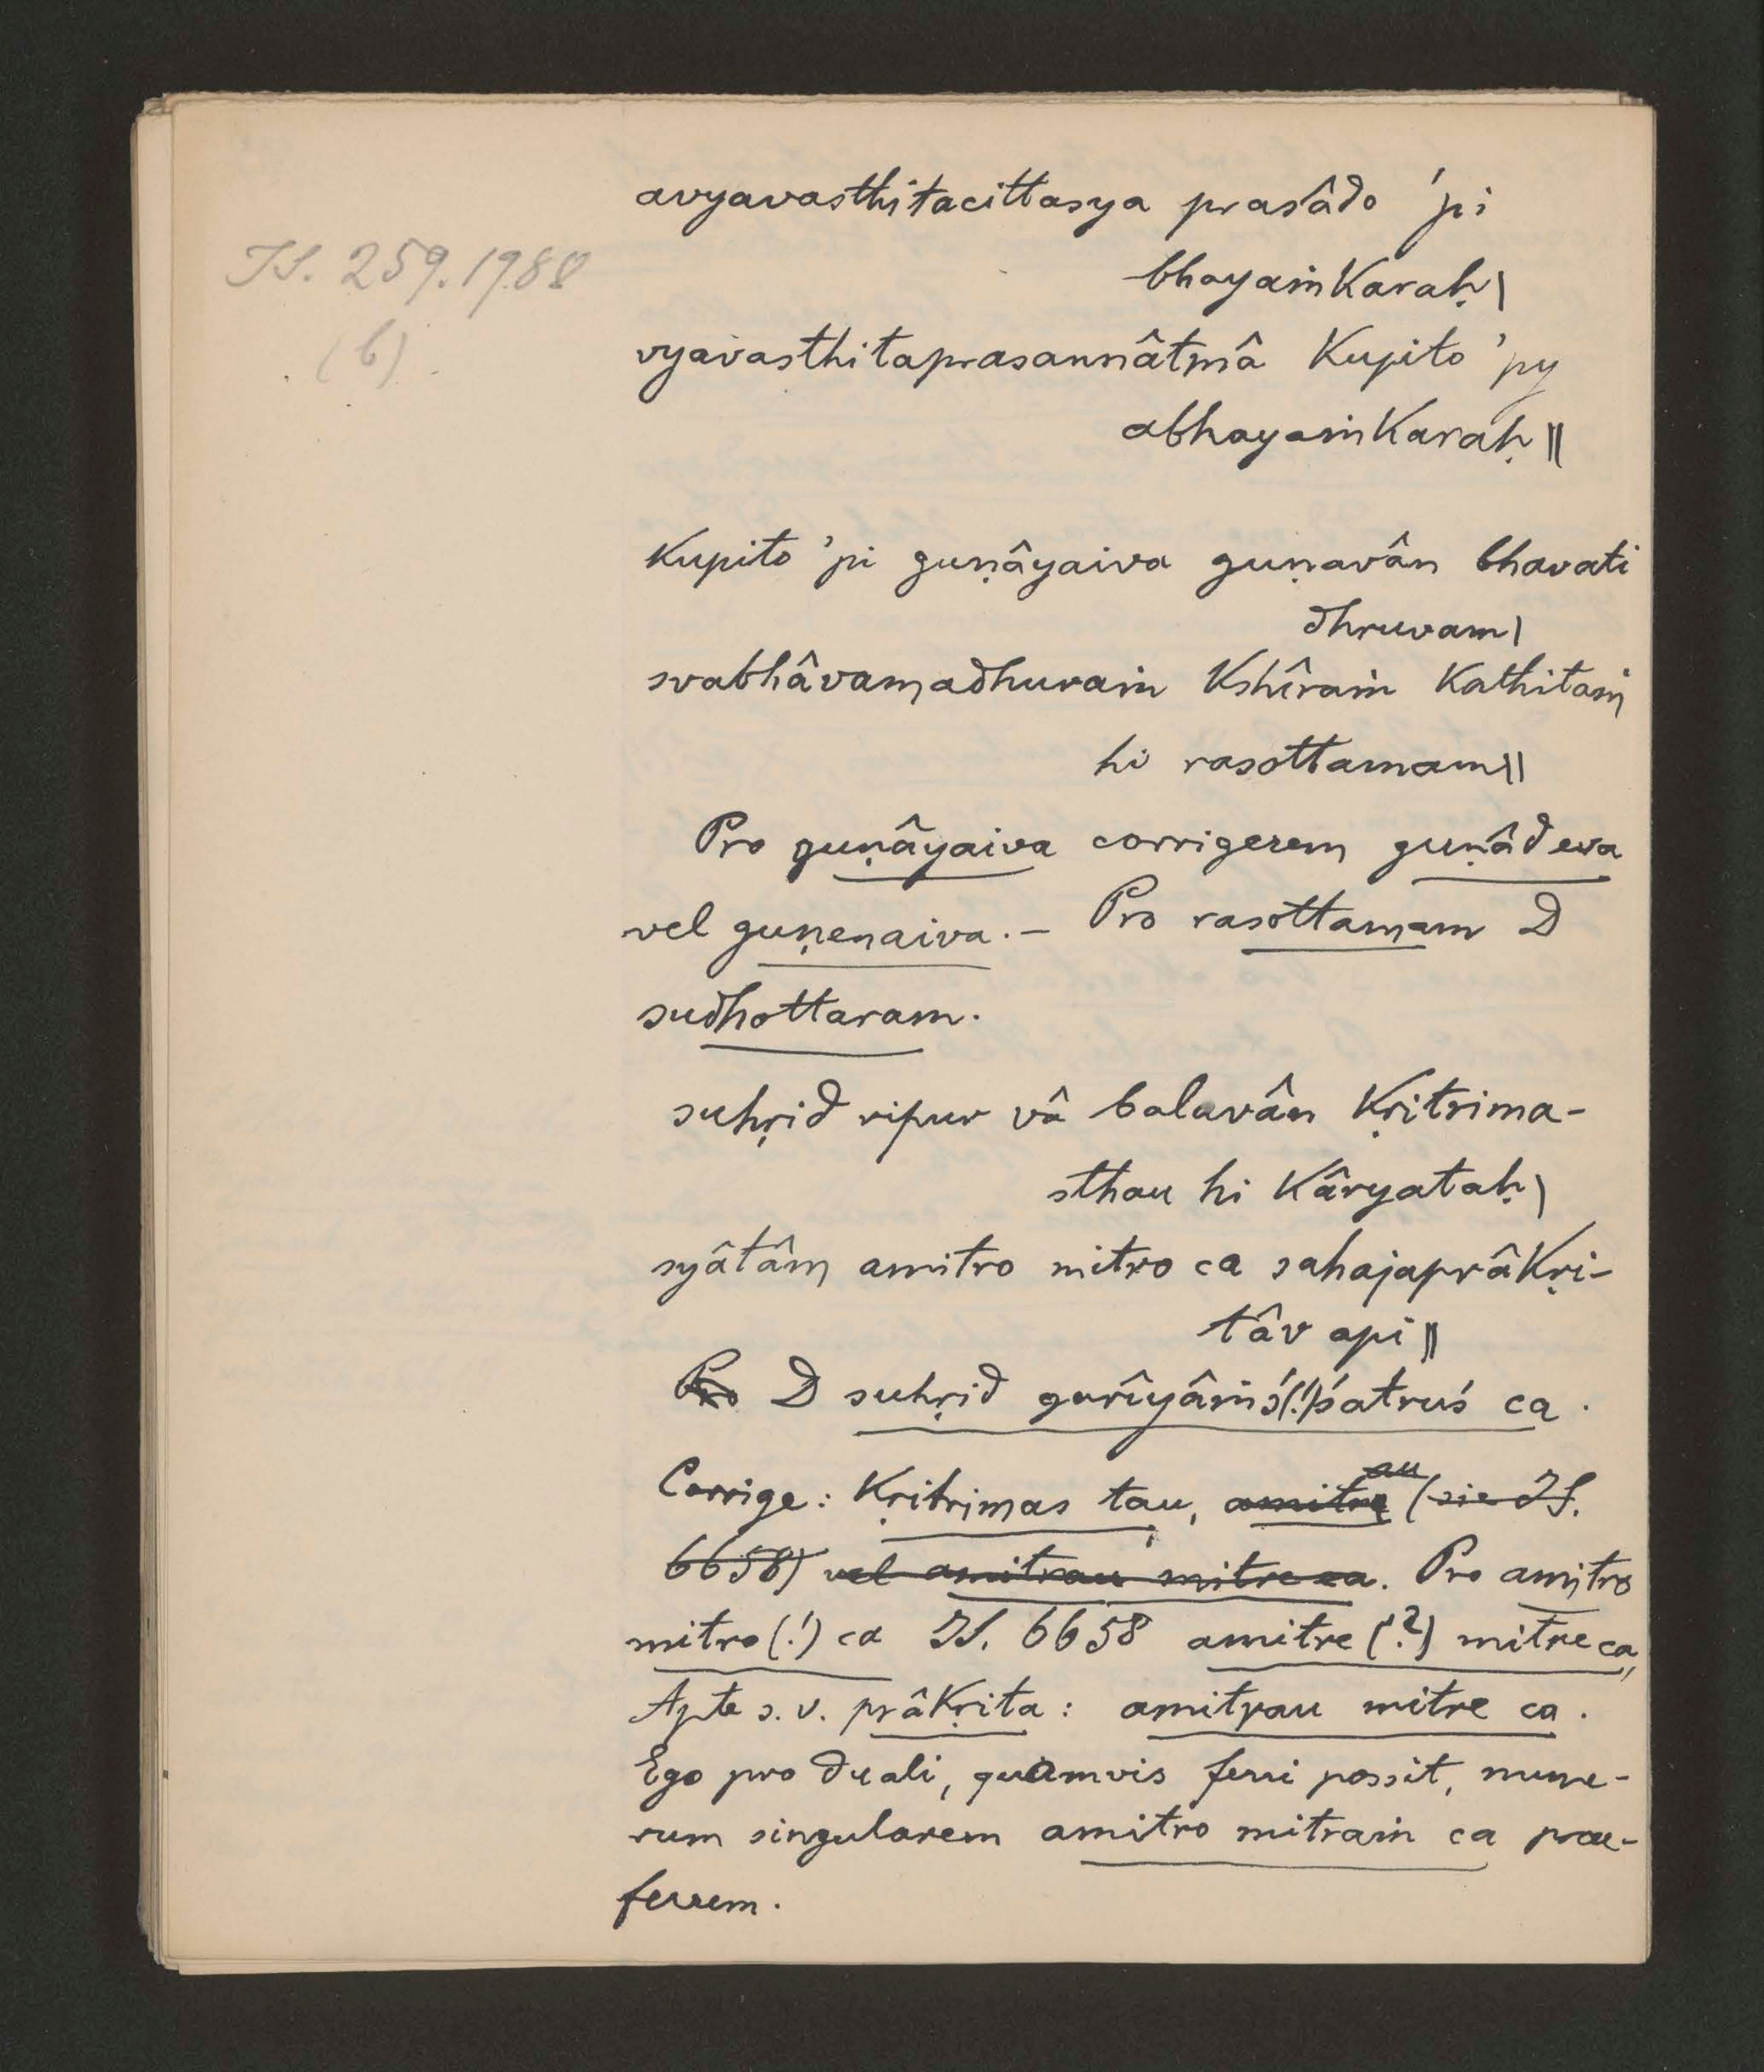 avyavasthitacittasya prasâdo 'pi
IS. 259. 1988
bhayaṁkaraḥ|
(b)
vyavasthitaprasannâtmâ kupito 'py
abhayaṁkaraḥ||
kupito 'pi guṇâyaiva guṇavân bhavati
dhruvam|
svabhâvamadhuraṁ kshîraṁ kathitaṁ
hi rasottamam||
Pro guṇâyaiva corrigerem guṇâd eva
vel guṇenaiva. – Pro rasottamam D
sudhottaram.
suhṛid ripur vâ balavân kṛitrima-
sthau hi kâryataḥ|
syâtâm amitro mitro ca sahajaprâkṛi-
tâv api||
Pro D suhṛid garîyâṁś(!)śatruś ca.
Corrige: kṛitrimas tau, amitrau (sic IS.
6658) vel amitrau mitre ca. Pro amitro
mitro(!) ca IS. 6658 amitre(?) mitre ca,
Apte s. v. prâkṛita: amitrau mitre ca.
Ego pro duali, quamvis ferri possit, nume-
rum singularem amitro mitraṁ ca prae-
ferrem.